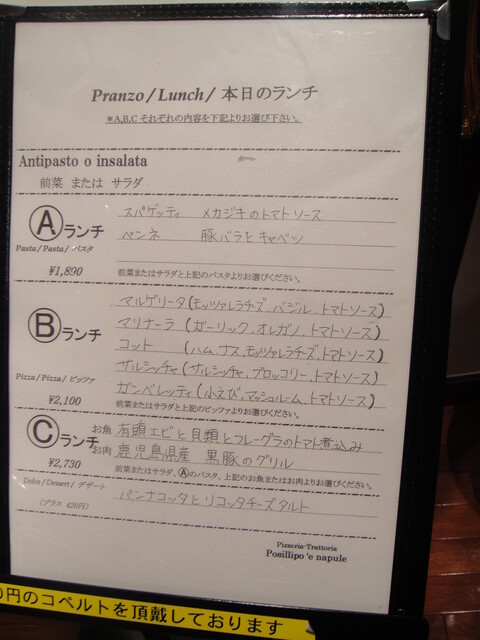 Pranzo / Lunch / 本日のランチ
*A,B,C それぞれの内容を下記よりお選び下さい。
Antipasto o insalata
前菜 または サラダ
Aランチ
スパゲッティ メカジキのトマトソース
ペンネ 豚バラとキャベツ
Pasta / Pasta / パスタ
¥1,890
前菜またはサラダと上記のパスタよりお選びください。
Bランチ
マルゲリータ(モッツァレラチーズ,バジル,トマトソース)
マリナーラ(ガーリック,オレガノ,トマトソーズ)
コット(ハム,ナス,モッツァレラチーズ,トマトソース)
サルシッチャ(サルシッチャ,ブロッコリー,トマトソース)
ガンベレッティ(小えび,マッシュルーム,トマトソース)
Pizza / Pizza / ピッツァ
¥2,100
前菜またはサラダと上記のピッツァよりお選びください。
Cランチ
お魚 有頭エビと貝類とフレーグラのトマト煮込み
お肉 鹿児島県産 黒豚のグリル
¥2,730
前菜またはサラダ、Aのパスタ、上記のお魚またはお肉よりお選びください。
Dolce / Dessert / デザート
(プラス 420円)
パンナコッタとリコッタチーズタルト
Pizzeria-Trattoria
Posillipo 'e napule
0円のコペルトを頂戴しております